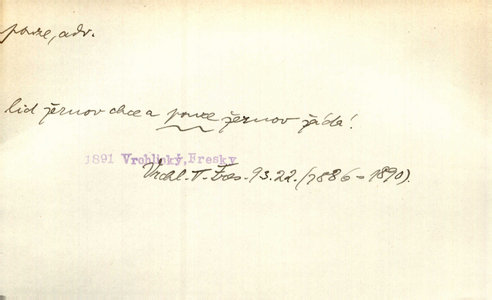 pouze, adv.
lid žernov chce a pouze žernov žádá!
1891 Vrchlický, Fresky
Vrchl. II. Fres. 93.22. (1886-1890).